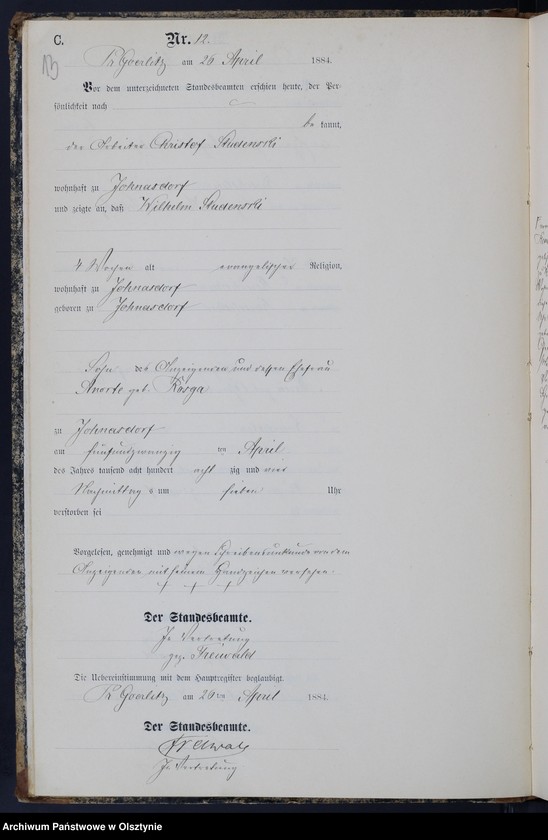 C.
Nr. 12.
13
Kl Goerlitz am 26 April 1884.
Vor dem unterzeichneten Standesbeamten erschien heute, der Per-
sönlichkeit nach
be kannt,
der Arbeiter Christof Studenski
wohnhaft zu Johnasdorf
und zeigte an, daß Wilhelm Studenski
4 Wochen alt evangelischer Religion,
wohnhaft zu Johnasdorf
geboren zu Johnasdorf
Sohn des Anzeigenden und dessen Ehefrau
Anorte geb. Kosga
zu Johnasdorf
am fünfundzwanzig ten April
des Jahres tausend acht hundert acht zig und vier
Nachmittag s um sieben Uhr
verstorben sei
Vorgelesen, genehmigt und wegen Schreibensunkunde von dem
Anzeigenden mit seinem Handzeichen versehen.
+ + +
Der Standesbeamte.
In Vertretung
gez.
Die Uebereinstimmung mit dem Hauptregister beglaubigt.
Kl Goerlitz am 26 ten April 1884.
Der Standesbeamte.
In Vertretung
Archiwum Państwowe w Olsztynie